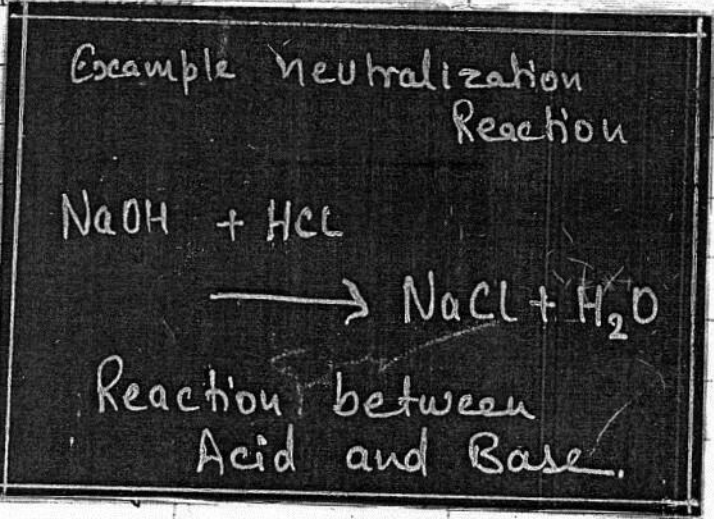 Example Neutralization
Reaction
NaOH + HCl
⟶ NaCl + H₂O
Reaction between
Acid and Base.